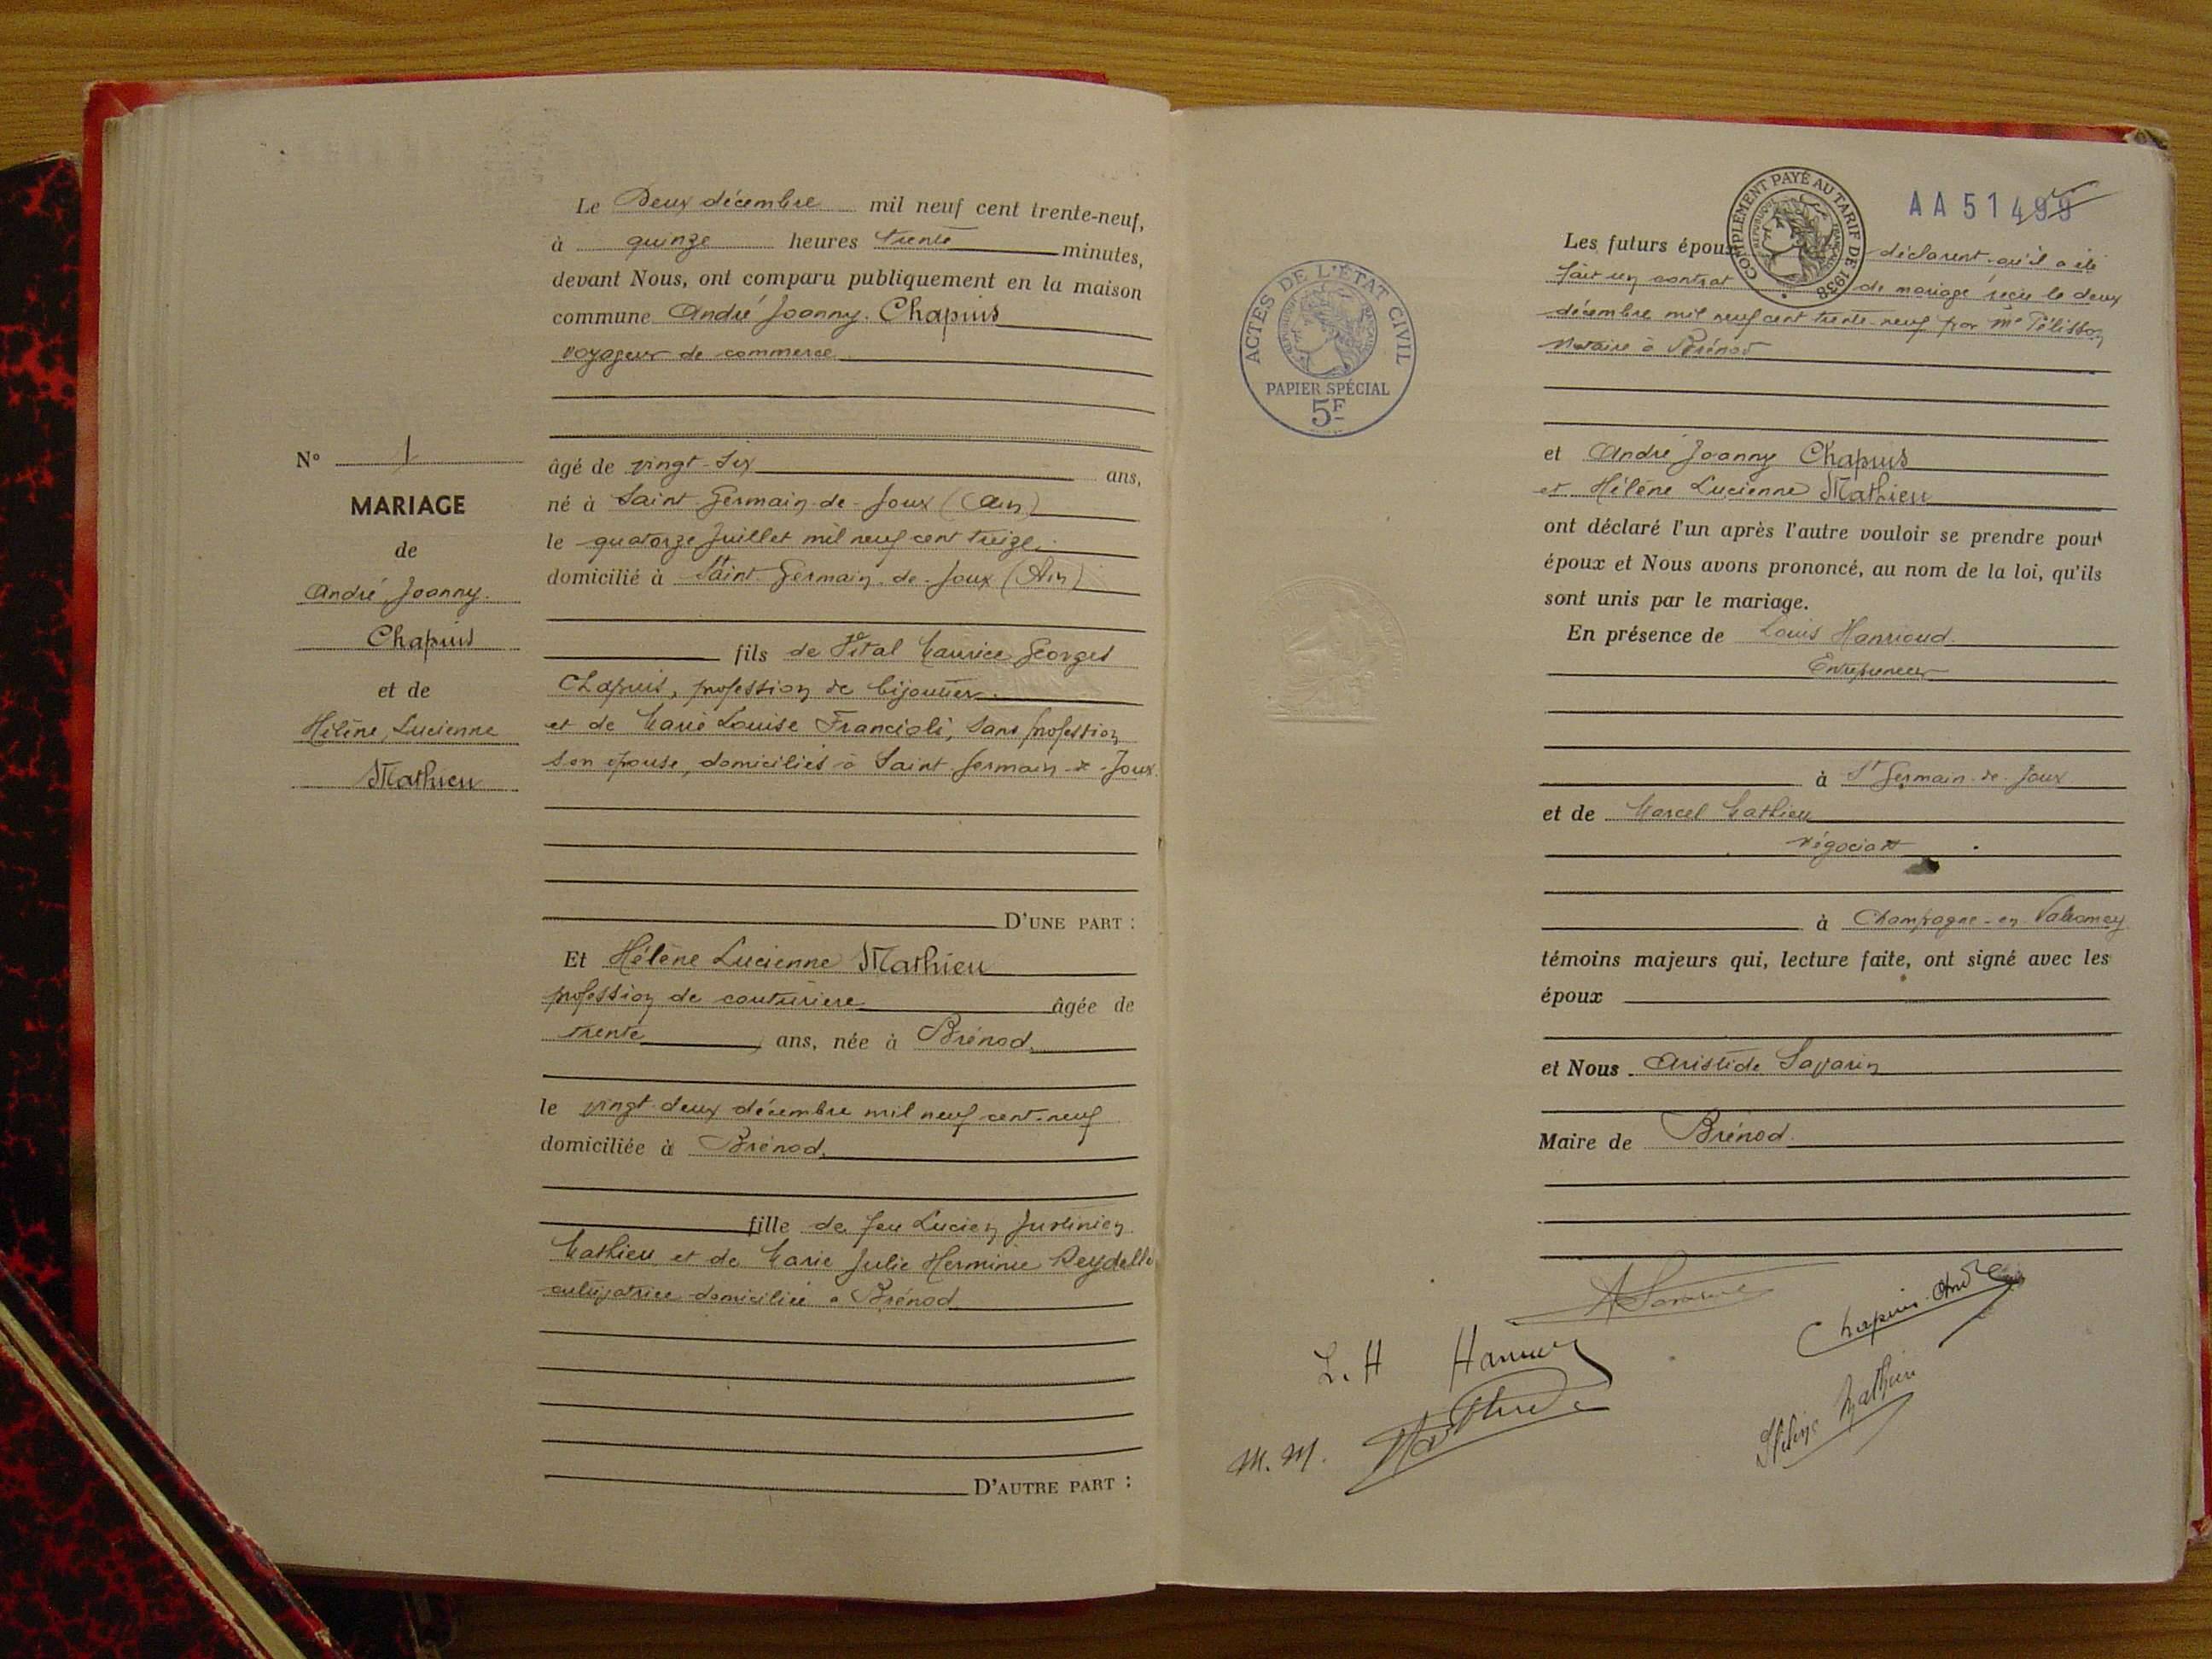 N° 1
MARIAGE
de
André, Joanny.
Chapuis
et de
Hélène, Lucienne
Mathieu
Le Deux décembre mil neuf cent trente-neuf,
à quinze heures trente minutes,
devant Nous, ont comparu publiquement en la maison
commune André Joanny. Chapuis
voyageur de commerce
âgé de vingt-six ans,
né à Saint-Germain-de-Joux (Ain)
le quatorze Juillet mil neuf cent treize.
domicilié à Saint-Germain-de-Joux (Ain)
fils de Vital Maurice Georges
Chapuis, profession de bijoutier.
et de Marie Louise Francioli, sans profession
son épouse, domiciliés à Saint-Germain-de-Joux.
D'UNE PART :
Et Hélène Lucienne Mathieu
profession de couturière âgée de
trente ans, née à Brénod.
le vingt-deux décembre mil neuf cent-neuf
domiciliée à Brénod.
fille de feu Lucien Justinien
Mathieu et de Marie Julie Herminie Reydellet
cultivatrice domiciliée à Brénod
D'AUTRE PART :
ACTES DE L'ÉTAT CIVIL
RÉPUBLIQUE FRANÇAISE
PAPIER SPÉCIAL
5F
COMPLÉMENT PAYÉ AU TARIF DE 1938
RÉPUBLIQUE FRANÇAISE
AA 51499
Les futurs époux déclarent qu'il a été
fait un contrat de mariage reçu le deux
décembre mil neuf cent trente-neuf par Me Pélisson
Notaire à Brénod
et André Joanny Chapuis
et Hélène Lucienne Mathieu
ont déclaré l'un après l'autre vouloir se prendre pour
époux et Nous avons prononcé, au nom de la loi, qu'ils
sont unis par le mariage.
En présence de Louis Hanrioud
Entrepreneur
à St Germain-de-Joux
et de Marcel Mathieu
négociant
à Champagne-en-Valromey
témoins majeurs qui, lecture faite, ont signé avec les
époux
et Nous Aristide Savarin
Maire de Brénod.
A Savarin
Chapuis André
L. H
Hélène Mathieu
M. M.